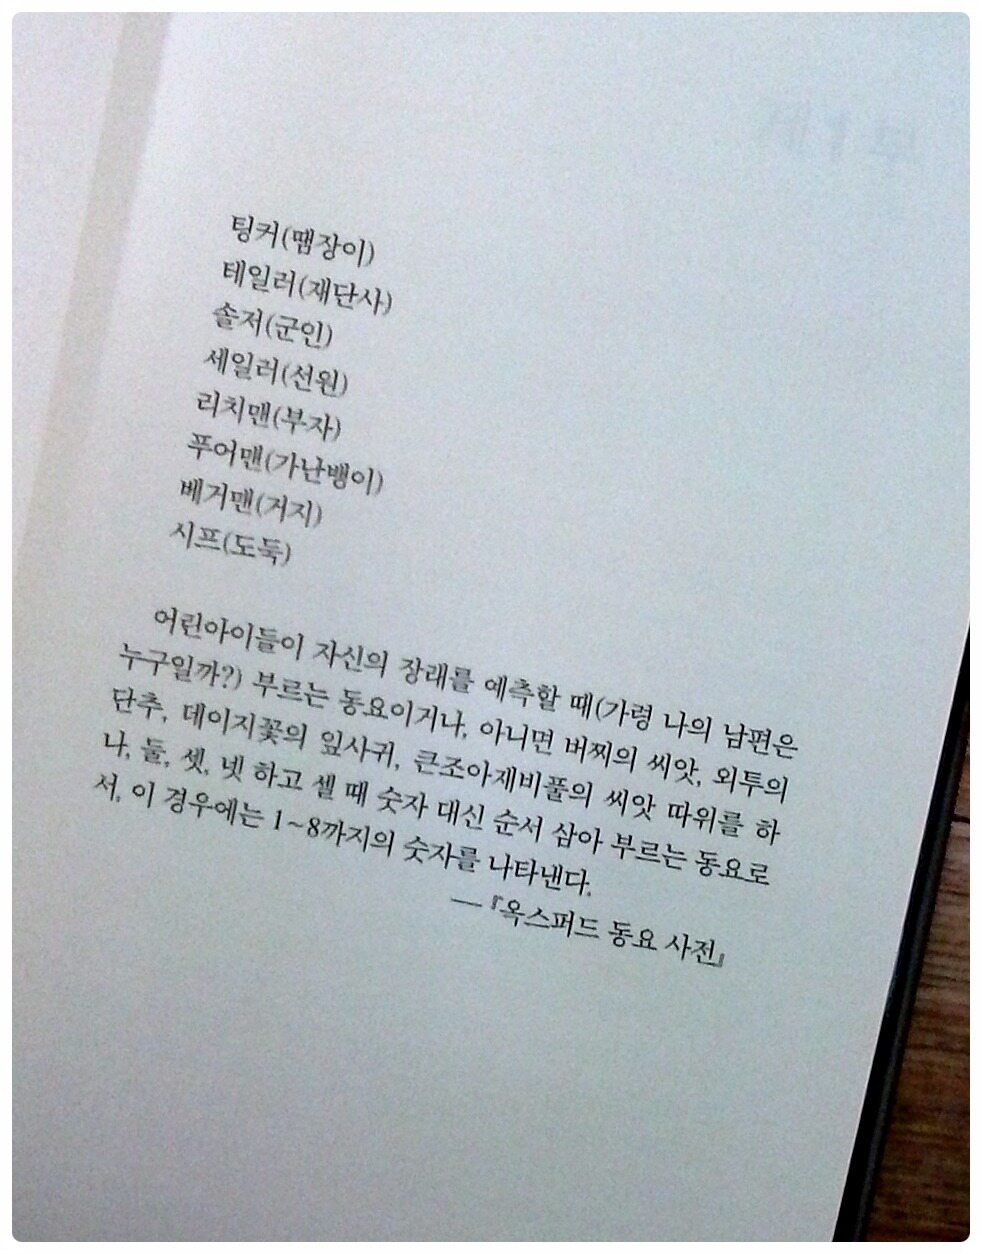 팅커(땜장이)
테일러(재단사)
솔저(군인)
세일러(선원)
리치맨(부자)
푸어맨(가난뱅이)
베거맨(거지)
시프(도둑)
어린아이들이 자신의 장래를 예측할 때(가령 나의 남편은
누구일까?) 부르는 동요이거나, 아니면 버찌의 씨앗, 외투의
단추, 데이지꽃의 잎사귀, 큰조아재비풀의 씨앗 따위를 하
나, 둘, 셋, 넷 하고 셀 때 숫자 대신 순서 삼아 부르는 동요로
서, 이 경우에는 1~8까지의 숫자를 나타낸다.
—『옥스퍼드 동요 사전』